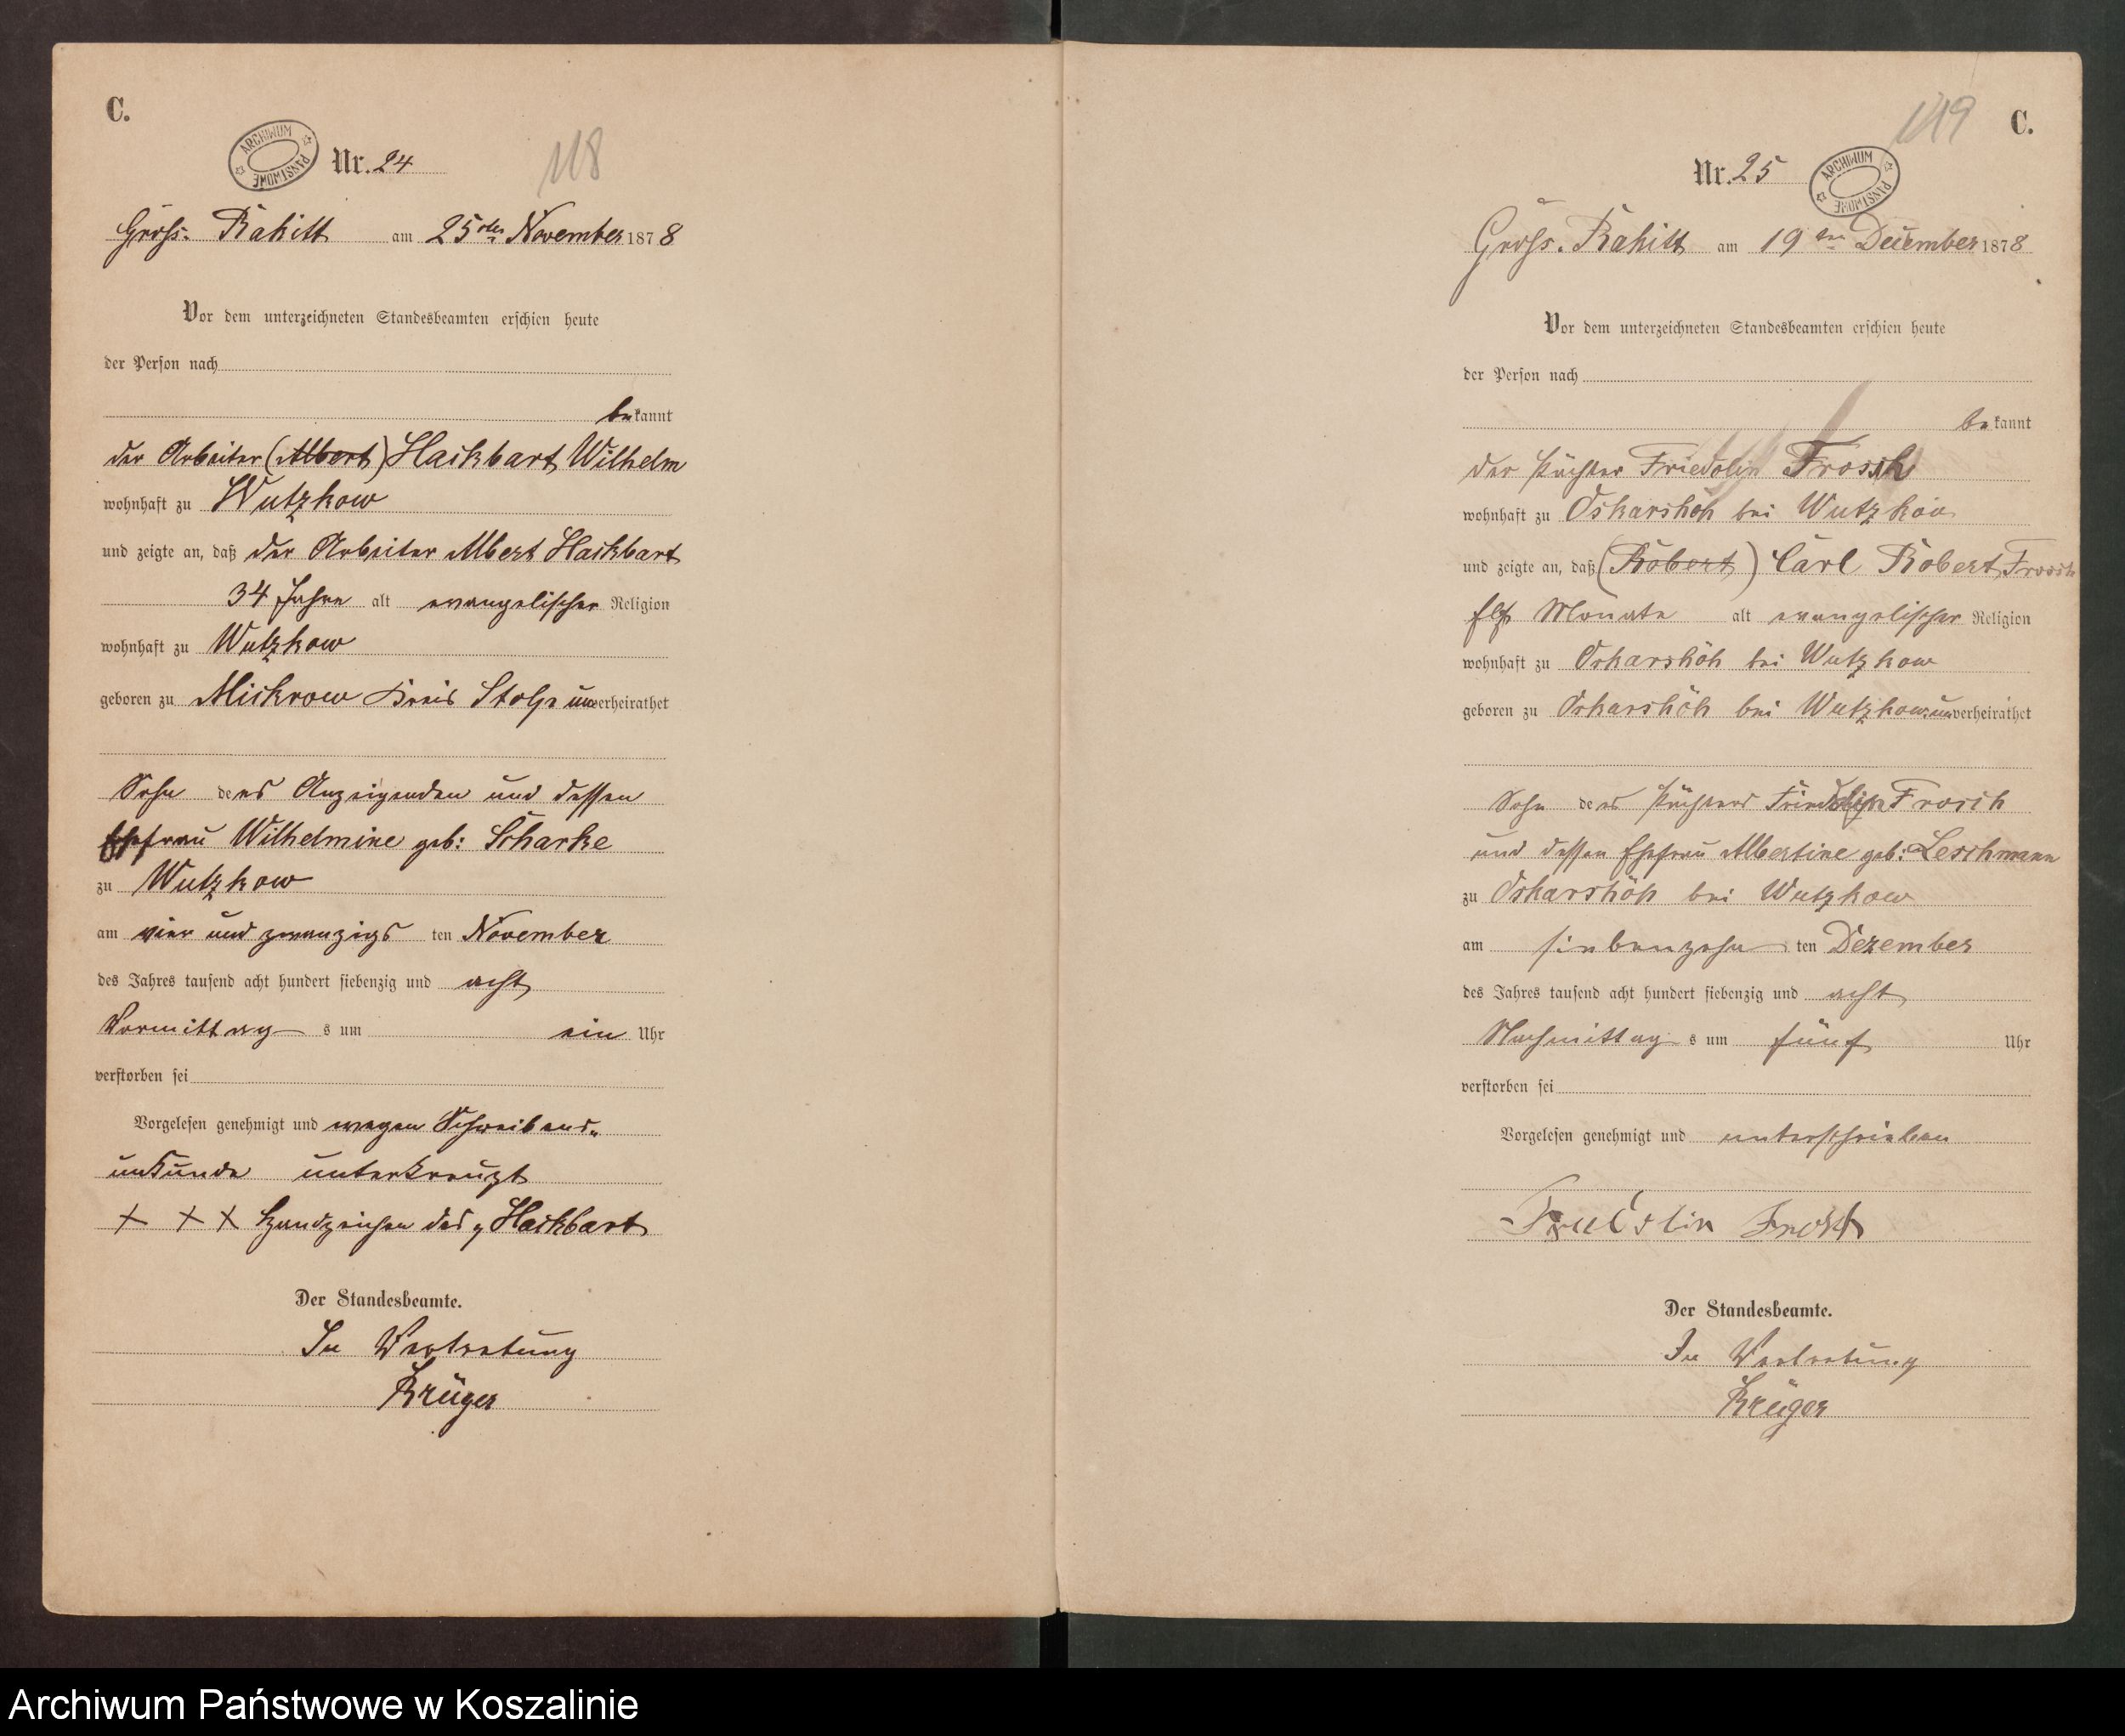 C.
ARCHIWUM PAŃSTWOWE
Nr. 24
118
Gross. Rakitt am 25ten November 1878
Vor dem unterzeichneten Standesbeamten erschien heute
der Person nach
bekannt
der Arbeiter (Albert) Hackbart, Wilhelm
wohnhaft zu Wutzkow
und zeigte an, daß der Arbeiter Albert Hackbart
34 Jahre alt evangelischer Religion
wohnhaft zu Wutzkow
geboren zu Mickrow Kreis Stolp unverheirathet
Sohn des Anzeigenden und dessen
Ehefrau Wilhelmine geb: Scharke
zu Wutzkow
am vier und zwanzigs ten November
des Jahres tausend acht hundert siebenzig und acht
Vormittag s um ein Uhr
verstorben sei
Vorgelesen genehmigt und wegen Schreibens-
unkunde unterkreuzt
+ + + Handzeichen des Hackbart
Der Standesbeamte.
In Vertretung
Krüger
149
C.
Nr. 25
ARCHIWUM PAŃSTWOWE
Gross. Rakitt am 19ten December 1878
Vor dem unterzeichneten Standesbeamten erschien heute
der Person nach
bekannt
der Pächter Friedolin Frosch
wohnhaft zu Oskarshöh bei Wutzkow
und zeigte an, daß (Robert) Carl Robert Frosch
elf Monate alt evangelischer Religion
wohnhaft zu Oskarshöh bei Wutzkow
geboren zu Oskarshöh bei Wutzkow unverheirathet
Sohn des Pächters Friedolin Frosch
und dessen Ehefrau Albertine geb: Leschmann
zu Oskarshöh bei Wutzkow
am siebenzehn ten Dezember
des Jahres tausend acht hundert siebenzig und acht
Nachmittag s um fünf Uhr
verstorben sei
Vorgelesen genehmigt und unterschrieben
Frosch
Der Standesbeamte.
In Vertretung
Krüger
Archiwum Państwowe w Koszalinie